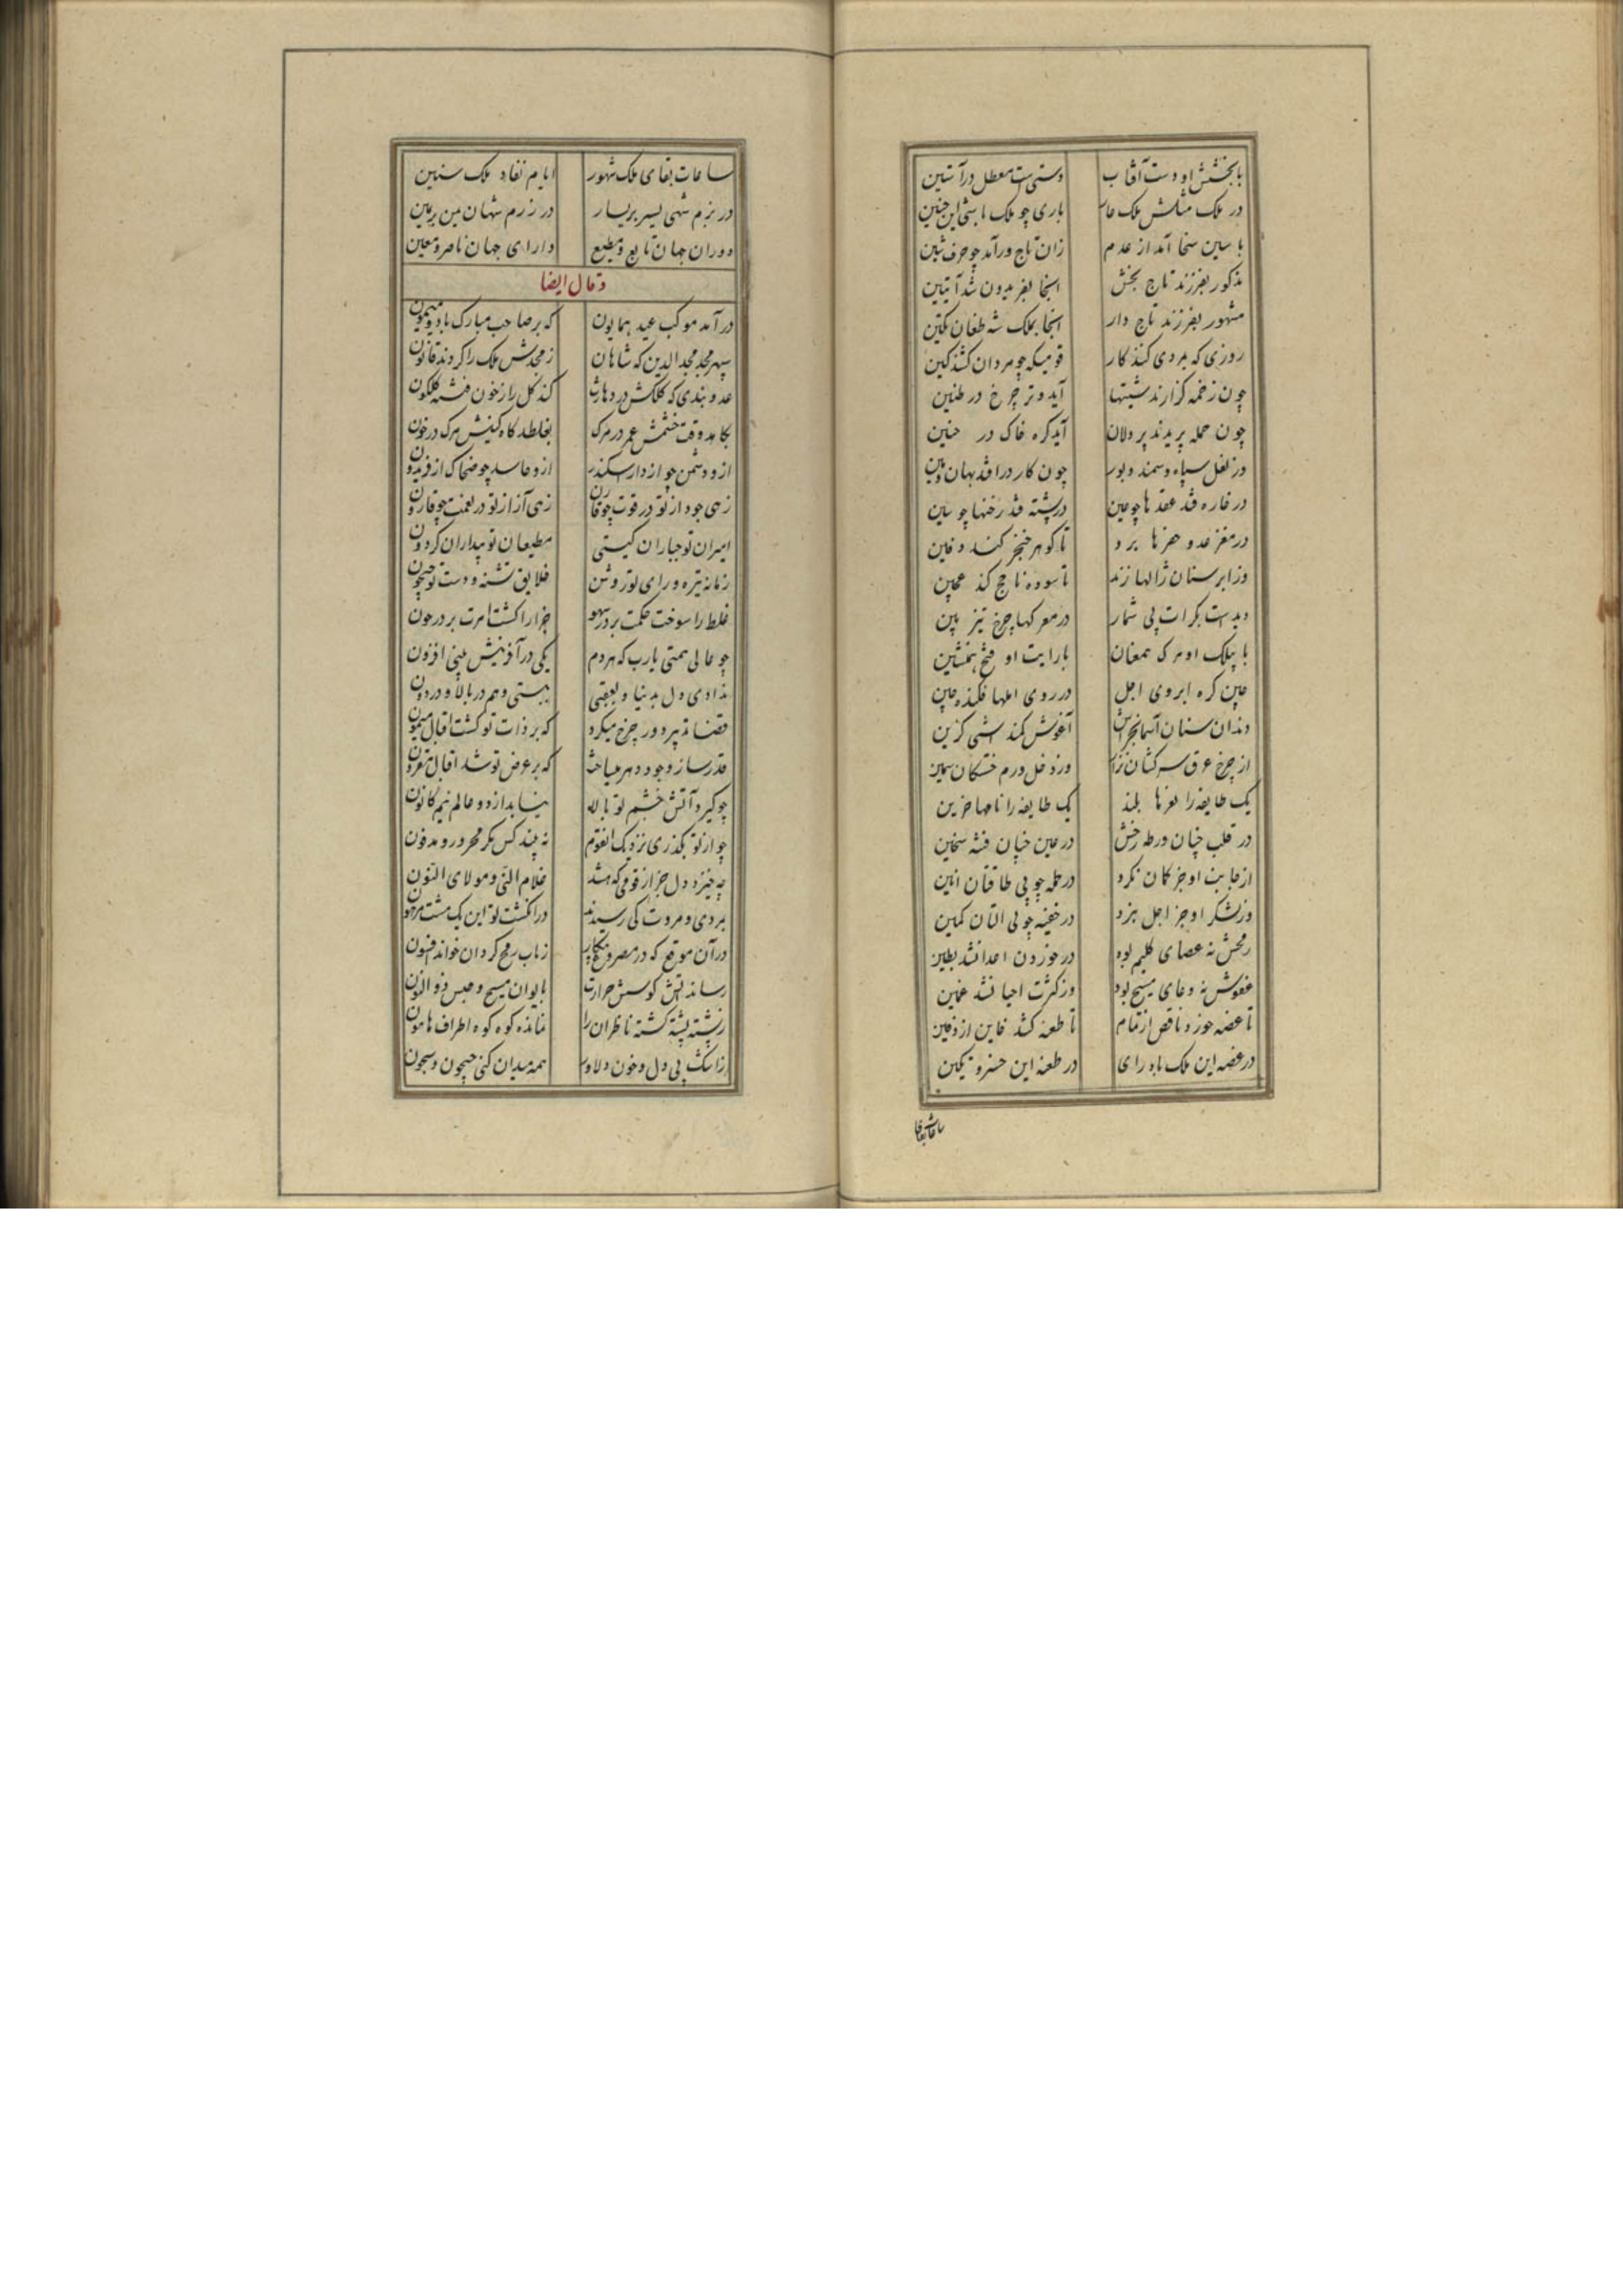 با بخشش او دست آفتاب دستی است معطل در آستین
در ملک مثلش ملک باری چو ملک این چنین
با سین سخا آمد از عدم زان تاج ور آمد چو حرف شین
مذکور بفرزند تاج بخش اینجا بفریدون شد آبتین
مشهور بفرزند تاج دار آنجا بملک شه طغان تکین
روزی که بمردی کنند کار قومیکه چو مردان کشند کین
چون زخمه گزارند شستها آید وتر چرخ در طنین
چون حمله پریدند پر دلان آید کره خاک در حنین
در نعل سیاه و سمند و بور چون کار در افتد بهان و هین
در خاره فتد عقدها چو عین در پشته فتد رخنها چو سین
در مغز عدو حفرها برد تا گوهر خنجر کند دفین
وز ابر سنان ژالها زند تا سوده ناچخ کند عجین
دیدست بکرات بی شمار در معرکها چرخ تیز بین
با بیلک او مرگ همعنان با رایت او فتح همنشین
چین گره ابروی اجل در روی املها فکنده چین
دندان سنان آغوش کمند
از چرخ عرق سرکشان وز دخل ورم خستگان سمین
یک طایفه را نعرها بلند یک طایفه را نامها حزین
در قلب چنان ورطه رخش در عین چنان فتنه سخین
از جانب او جز کان نکرد در حمله چو بی طاقتان انین
وز لشکر او جز اجل نبرد در خفیه چو بی آلتان کمین
رمحش نه عصای کلیم بود در خوردن اعدا نشد بطین
عفوش نه دعای مسیح بود وز کثرت احیا نشد غمین
تا غصه خورد ناقص از تمام تا طعنه کشد خاین از امین
در غصه این ملک باد رای در طعنه این خسرو تکین
ساعات بقای
ساعات بقای ملک شهور ایام نفاد ملک سنین
در بزم شهی یسر بر یسار در رزم شهان یمن بر یمین
دوران جهان تابع و مطیع دارای جهان ناصر و معین
وقال ایضا
در آمد موکب عید همایون که بر صاحب مبارک باد و میمون
سپهر مجد مجد الدین که شاهان ز مجدش ملک را کردند قانون
عدو بندی که کلکش در دهارت کند گل را ز خون فتنه گلگون
بکاهد وقت خشمش عمر در مرگ بغلطد گاه کینش مرگ در خون
ازو دشمن چو از دارا سکندر ازو حاسد چو ضحاک از فریدون
زهی جود از تو در قوت چو قارن زهی آز از تو در نعمت چو قارون
اسیران تو جباران گیتی مطیعان تو بیداران گردون
زمانه تیره و رای تو روشن خلایق تشنه و دست تو جیحون
غلط را سوخت حکمت بر در سهو چرا را کشت امرت بر در چون
چو عالی همتی یارب که هر دم یکی در آفرینش بینی افزون
ندادی دل بدنیا و بعقبی ببستی وهم در بالا و در دون
قضا تدبیر دور چرخ میکرد که بر ذات تو گشت اقبال میمون
قدر ساز وجود دهر میساخت که بر عرض تو شد اقبال مقرون
چو گیرد آتش خشم تو بالا نیساید از دو عالم نیم کانون
چو از تو بگذری نزدیک آن قوم نه بیند کس مگر محرور و مدفون
چه خیزد دل جز از قومی که باشد غلام التی و مولای النون
بمردی و مروت کی رسیدند در انگشت تو این یک مشت مرهون
در آن موقع که در مصر و غا پیکار ز باب رمح گردان خواند افسون
رساند آتش کوشش حرارت بایوان مسیح و حبس ذو النون
ز پشته پشته گشته ناظران را نمانده کوه کوه اطراف هامون
ز اشک بی دل و خون دلاور همه میدان کنی جیحون و سیحون